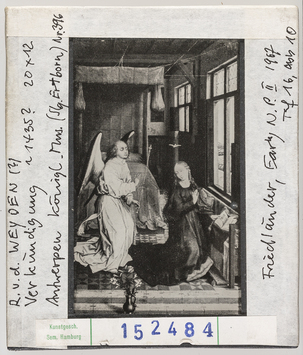 R. v. d. WEYDEN (?)
Verkündigung ~ 1435? 20 x 12
Antwerpen Königl. Mus. (Slg. Ertborn) Nr. 396
Friedländer, Early N. P. II 1967
Tf 16, abb 10
Kunstgesch.
Sem. Hamburg
152484